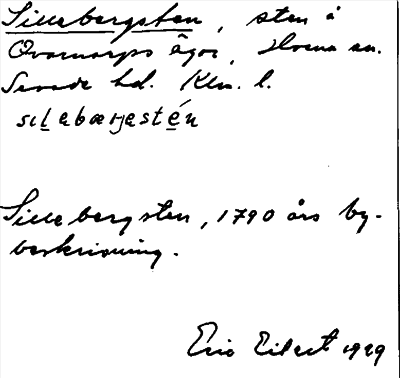 Sillebergsten, sten å
Qvarnarps ägor, Flisby sn.
Sevede hd. Klm. l.
silebærjestén
Sillebergsten, 1790 års by-
beskrivning.
Eric Eilert 1929